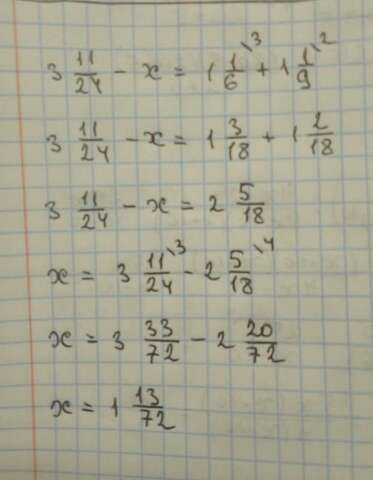 3 11/24 - x = 1 1/6 \3 + 1 1/9 \2
3 11/24 - x = 1 3/18 + 1 2/18
3 11/24 - x = 2 5/18
x = 3 11/24 \3 - 2 5/18 \4
x = 3 33/72 - 2 20/72
x = 1 13/72